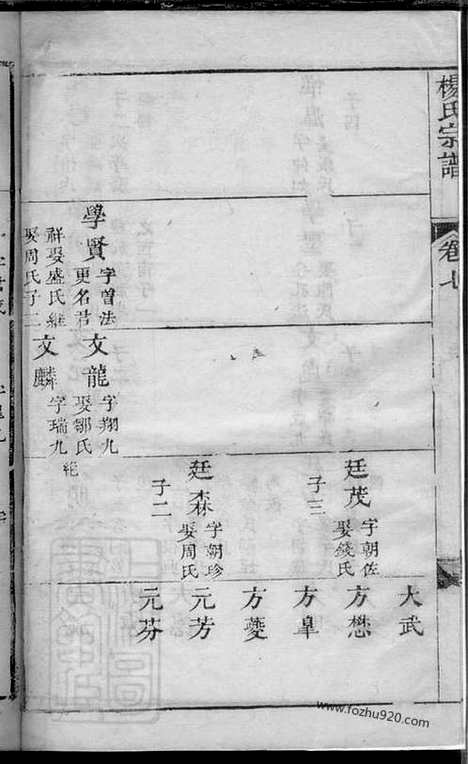 楊氏宗譜
卷七
學賢
字曾法
更名君
祥娶盛氏継
娶周氏子二
文龍
字翔九
娶鄒氏
文麟
字瑞九
廷茂
字朝佐
娶錢氏
子三
廷森
字朝珍
娶周氏
子二
大武
方懋
方臯
方夔
元芳
元芬
www.fozhu920.com